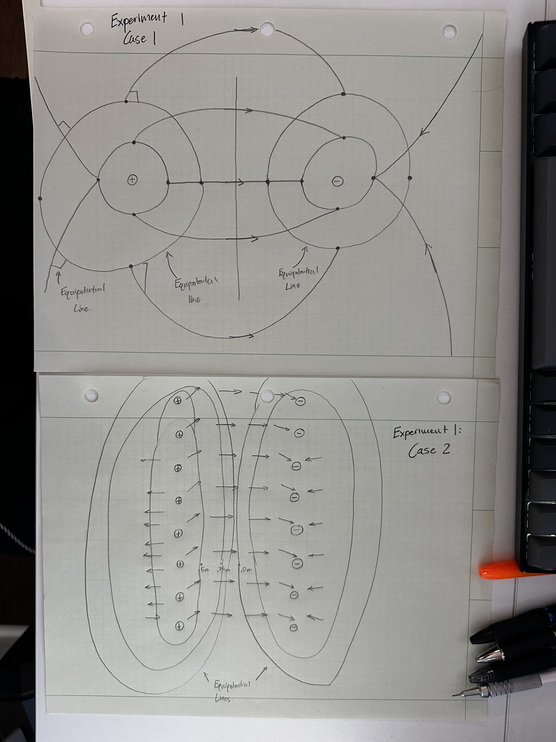 Experiment 1
Case 1
+
-
Equipotential
line
Equipotential
Line
Equipotential
Line.
Experiment 1:
Case 2
+
-
+
-
+
-
+
-
+
-
+
-
+
-
+
-
Equipotential
Lines.